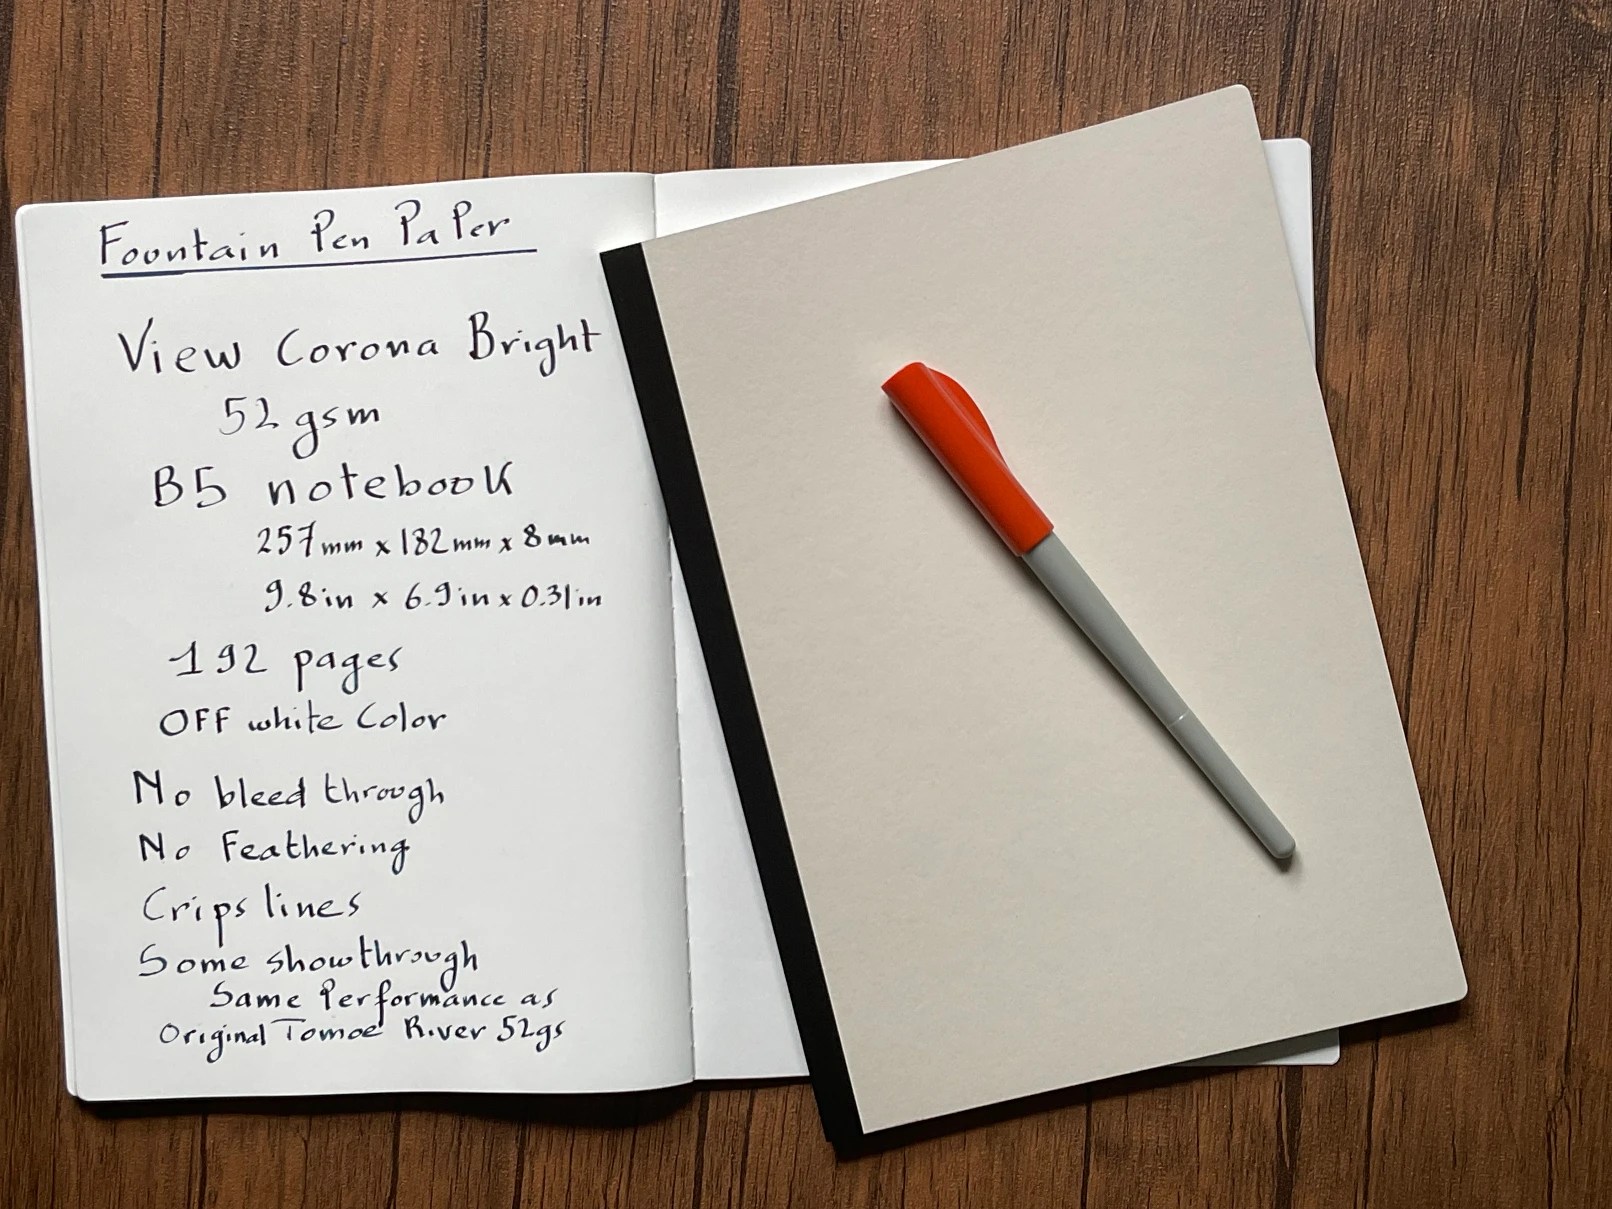 Fountain Pen PaPer
View Corona Bright
52 gsm
B5 notebook
257mm x 182mm x 8mm
9.8in x 6.9in x 0.31in
192 pages
OFF white Color
No bleed through
No Feathering
Crips lines
Some showthrough
Same Performance as
Original Tomoe River 52gs